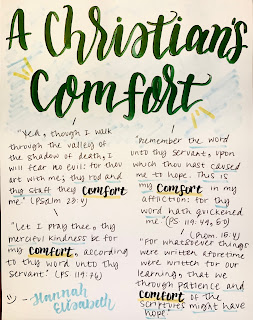 A Christian's
Comfort
"Yea, though I walk
through the valley of
the shadow of death, I
will fear no evil: for thou
art with me; thy rod and
thy staff they comfort
me." (Psalm 23:4)
"Let, I pray thee, thy
merciful kindness be for
my comfort, according
to thy word unto thy
servant." (PS. 119:76)
- Hannah
Elisabeth
"Remember the word
unto thy servant, upon
which thou hast caused me
to hope. This is
my comfort in my
affliction: for thy
word hath quickened
me." (PS. 119:49,50)
(Rom. 15:4)
"For whatsoever things
were written aforetime
were written for our
learning, that we
through patience and
comfort of the
scriptures might have
hope."